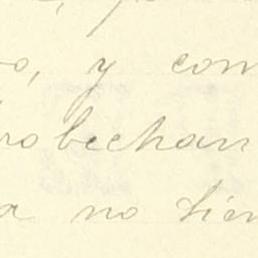 o, y com
robechan
a no tien